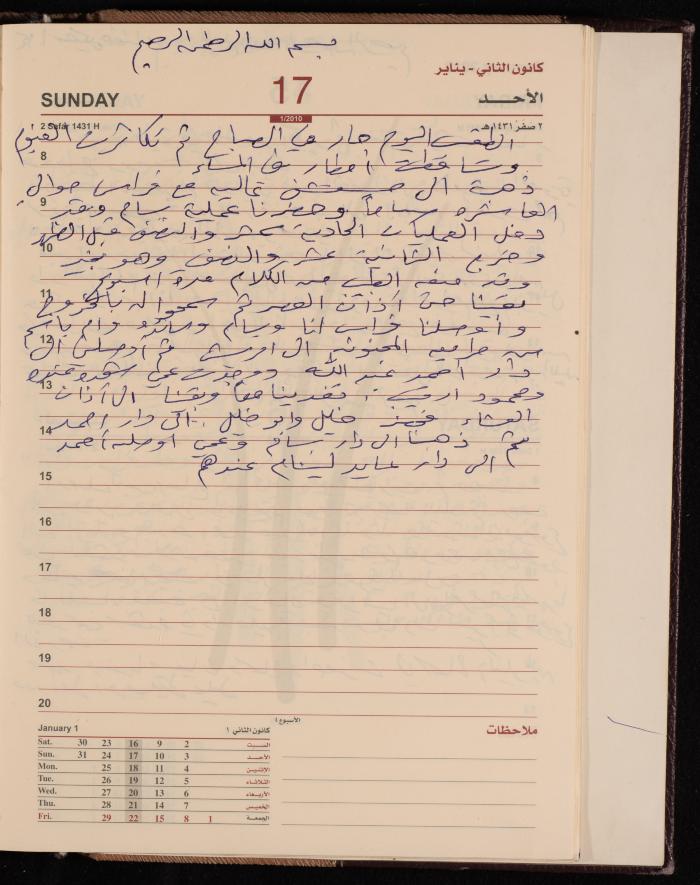 بسم الله الرحمن الرحيم
كانون الثاني - يناير
SUNDAY
17
الأحـــد
1/2010
2 Safar 1431 H
٢ صفر ١٤٣١هـ
الطقس اليوم حار في الصباح ثم تكاثرت الغيوم
8
وتساقطت أمطار في المساء
ذهبت الى مستشفى عاليه مع فراس حوالي
9
العاشره صباحاً وحضرنا عملية بسام وقد
دخل العمليات الحادية عشر والنصف قبل الظهر
10
وخرج الثانية عشر والنصف وهو بخير
وقد منعه الطبيب من الكلام مدة اسبوع
11
بقينا حتى أذان العصر ثم سمحوا له بالخروج
و أوصلنا فراس انا وبسام وسائده وام باسم
12
من ثم أوصلني الى
دار أحمد عبد الله ووجدت عمي
13
ومحمود تغدينا معاً وبقينا الى أذان
العشاء خليل وابو خليل الى دار احمد
14
ثم ذهبنا الى دار بسام وعمي اوصله أحمد
الى دار عايد لينام عندهم
15
16
17
18
19
20
ملاحظات
الأسبوع ٤
January 1
كانون الثاني ١
Sat. 30 23 16 9 2 السبت
Sun. 31 24 17 10 3 الأحد
Mon. 25 18 11 4 الإثنين
Tue. 26 19 12 5 الثلاثاء
Wed. 27 20 13 6 الأربعاء
Thu. 28 21 14 7 الخميس
Fri. 29 22 15 8 1 الجمعة